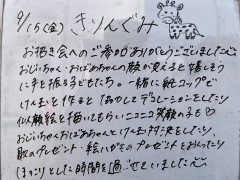 9/15(金) きりんぐみ
お招き会へのご参加ありがとうございました
おじいちゃん・おばあちゃんの顔が見えると嬉しそう
に手を振る子どもたち。一緒に紙コップで
けん玉を作ると、デコレーションをしたり
似顔絵を描いてもらいニコニコ笑顔の子
おじいちゃんおばあちゃんとけん玉対決をしたり、
歌のプレゼント・絵はがきのプレゼントをおくったり
ほっこりとした時間を過ごせていました